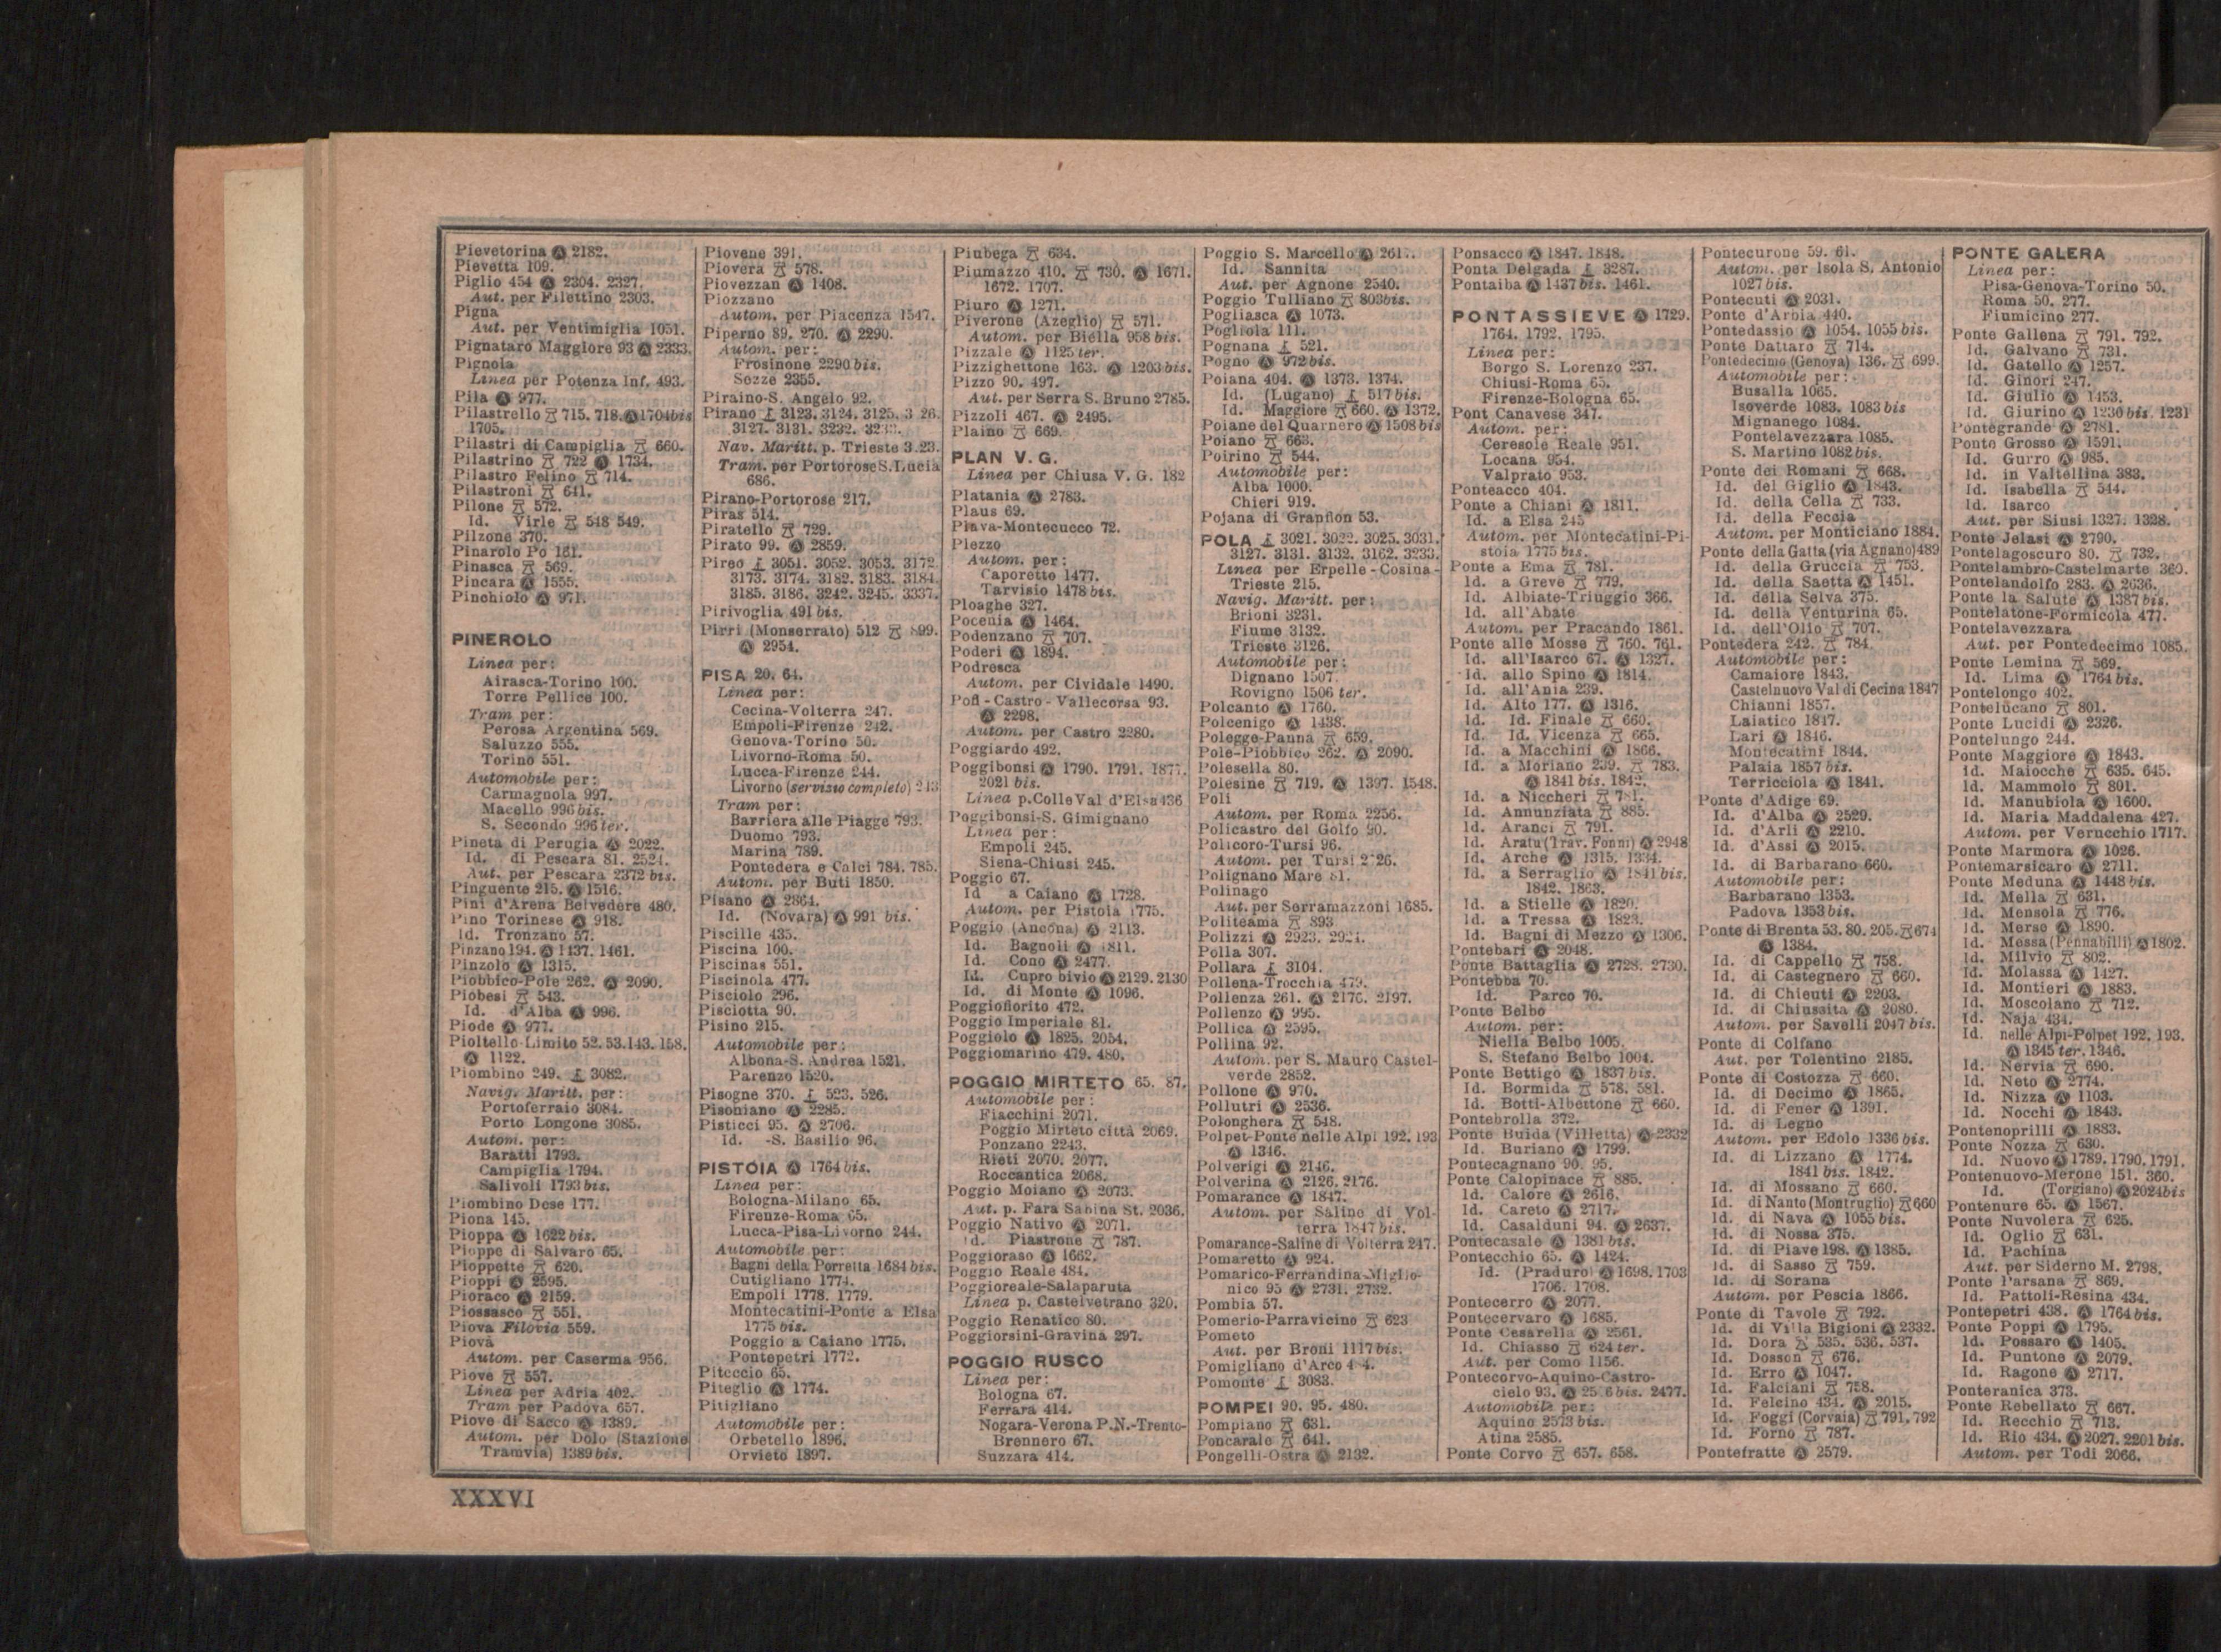 Pievetorina Ⓐ 2182.
Pievetta 109.
Piglio 454 Ⓐ 2304. 2327.
Aut. per Filettino 2303.
Pigna
Aut. per Ventimiglia 1051.
Pignataro Maggiore 93 Ⓐ 2333.
Pignola
Linea per Potenza Inf. 493.
Pila Ⓐ 977.
Pilastrello 715. 718. Ⓐ 1704bis
1705.
Pilastri di Campiglia 660.
Pilastrino 722 Ⓐ 1734.
Pilastro Felino 714.
Pilastroni 641.
Pilone 572.
Id. Virle 548 549.
Pilzone 370.
Pinarolo Po 161.
Pinasca 569.
Pincara Ⓐ 1555.
Pinchiolo Ⓐ 971.
PINEROLO
Linea per:
Airasca-Torino 100.
Torre Pellice 100.
Tram per:
Perosa Argentina 569.
Saluzzo 555.
Torino 551.
Automobile per:
Carmagnola 997.
Macello 996bis.
S. Secondo 996ter.
Pineta di Perugia Ⓐ 2022.
Id. di Pescara 81. 2524.
Aut. per Pescara 2372 bis.
Pinguente 215. Ⓐ 1516.
Pini d'Arena Belvedere 480.
Pino Torinese Ⓐ 918.
Id. Tronzano 57.
Pinzano 194. Ⓐ 1437. 1461.
Pinzolo Ⓐ 1315.
Piobbico-Pole 262. Ⓐ 2090.
Piobesi 543.
Id. d'Alba Ⓐ 996.
Piode Ⓐ 977.
Pioltello-Limito 52. 53. 143. 158.
Ⓐ 1122.
Piombino 249. 3082.
Navig. Maritt. per:
Portoferraio 3084.
Porto Longone 3085.
Autom. per:
Baratti 1793.
Campiglia 1794.
Salivoli 1793bis.
Piombino Dese 177.
Piona 145.
Pioppa Ⓐ 1622bis.
Pioppe di Salvaro 65.
Pioppette 620.
Pioppi Ⓐ 2595.
Pioraco Ⓐ 2159.
Piossasco 551.
Piova Filovia 559.
Piovà
Autom. per Caserma 956.
Piove 557.
Linea per Adria 402.
Tram per Padova 657.
Piove di Sacco Ⓐ 1389.
Autom. per Dolo (Stazione
Tramvia) 1389bis.
Piovene 391.
Piovera 578.
Piovezzan Ⓐ 1408.
Piozzano
Autom. per Piacenza 1547.
Piperno 89. 270. Ⓐ 2290.
Autom. per:
Frosinone 2290bis.
Sezze 2355.
Piraino-S. Angelo 92.
Pirano 3123. 3124. 3125. 3 26.
3127. 3131. 3232.
Nav. Maritt. p. Trieste 3 23.
Tram. per Portorose S. Lucia
686.
Pirano-Portorose 217.
Piras 514.
Piratello 729.
Pirato 99. Ⓐ 2859.
Pireo 3051. 3052. 3053. 3172.
3173. 3174. 3182. 3183. 3184.
3185. 3186. 3242. 3245. 3337.
Pirivoglia 491 bis.
Pirri (Monserrato) 512 899.
Ⓐ 2954.
PISA 20. 64.
Linea per:
Cecina-Volterra 247.
Empoli-Firenze 242.
Genova-Torino 50.
Livorno-Roma 50.
Lucca-Firenze 244.
Livorno (servizio completo) 243
Tram per:
Barriera alle Piagge 793.
Duomo 793.
Marina 789.
Pontedera e Calci 784. 785.
Autom. per Buti 1850.
Pisano Ⓐ 2864.
Id. (Novara) Ⓐ 991 bis.
Piscille 435.
Piscina 100.
Piscinas 551.
Piscinola 477.
Pisciolo 296.
Pisciotta 90.
Pisino 215.
Automobile per:
Albona-S. Andrea 1521.
Parenzo 1520.
Pisogne 370. 523. 526.
Pisoniano Ⓐ 2285.
Pisticci 95. Ⓐ 2706.
Id. -S. Basilio 96.
PISTOIA Ⓐ 1764bis.
Linea per:
Bologna-Milano 65.
Firenze-Roma 65.
Lucca-Pisa-Livorno 244.
Automobile per:
Bagni della Porretta 1684 bis.
Cutigliano 1774.
Empoli 1778. 1779.
Montecatini-Ponte a Elsa
1775 bis.
Poggio a Caiano 1775.
Pontepetri 1772.
Piteccio 65.
Piteglio Ⓐ 1774.
Pitigliano
Automobile per:
Orbetello 1896.
Orvieto 1897.
Piubega 634.
Piumazzo 410. 730. Ⓐ 1671.
1672. 1707.
Piuro Ⓐ 1271.
Piverone (Azeglio) 571.
Autom. per Biella 958bis.
Pizzale Ⓐ 1125ter.
Pizzighettone 163. Ⓐ 1203bis.
Pizzo 90. 497.
Aut. per Serra S. Bruno 2785.
Pizzoli 467. Ⓐ 2495.
Plaino 669.
PLAN V. G.
Linea per Chiusa V. G. 182
Platania Ⓐ 2783.
Plaus 69.
Plava-Montecucco 72.
Plezzo
Autom. per:
Caporetto 1477.
Tarvisio 1478bis.
Ploaghe 327.
Pocenia Ⓐ 1464.
Podenzano 707.
Poderi Ⓐ 1894.
Podresca
Autom. per Cividale 1490.
Pofi-Castro-Vallecorsa 93.
Ⓐ 2298.
Autom. per Castro 2280.
Poggiardo 492.
Poggibonsi Ⓐ 1790. 1791. 1877.
2021 bis.
Linea p. Colle Val d'Elsa 436
Poggibonsi-S. Gimignano
Linea per:
Empoli 245.
Siena-Chiusi 245.
Poggio 67.
Id a Caiano Ⓐ 1728.
Autom. per Pistoia 1775.
Poggio (Ancona) Ⓐ 2113.
Id. Bagnoli Ⓐ 1811.
Id. Cono Ⓐ 2477.
Id. Cupro bivio Ⓐ 2129. 2130
Id. di Monte Ⓐ 1096.
Poggiofiorito 472.
Poggio Imperiale 81.
Poggiolo Ⓐ 1825. 2054.
Poggiomarino 479. 480.
POGGIO MIRTETO 65. 87.
Automobile per:
Fiacchini 2071.
Poggio Mirteto città 2069.
Ponzano 2243.
Rieti 2070. 2077.
Roccantica 2068.
Poggio Moiano Ⓐ 2073.
Aut. p. Fara Sabina St. 2036.
Poggio Nativo Ⓐ 2071.
Id. Piastrone 787.
Poggioraso Ⓐ 1662.
Poggio Reale 484.
Poggioreale-Salaparuta
Linea p. Castelvetrano 320.
Poggio Renatico 80.
Poggiorsini-Gravina 297.
POGGIO RUSCO
Linea per:
Bologna 67.
Ferrara 414.
Nogara-Verona P.N.-Trento-
Brennero 67.
Suzzara 414.
Poggio S. Marcello Ⓐ
Id. Sannita
Aut. per Agnone 2540.
Poggio Tulliano 803bis.
Pogliasca Ⓐ 1073.
Pogliola 111.
Pognana 521.
Pogno Ⓐ 972bis.
Poiana 404. Ⓐ 1373. 1374.
Id. (Lugano) 517bis.
Id. Maggiore 660. Ⓐ 1372.
Poiane del Quarnero Ⓐ 1508bis
Poiano 663.
Poirino 544.
Automobile per:
Alba 1000.
Chieri 919.
Pojana di Granfion 53.
POLA 3021. 3022. 3025. 3031.
3127. 3131. 3132. 3162. 3233.
Linea per Erpelle-Cosina-
Trieste 215.
Navig. Maritt. per:
Brioni 3231.
Fiume 3132.
Trieste 3126.
Automobile per:
Dignano 1507.
Rovigno 1506 ter.
Polcanto Ⓐ 1760.
Polcenigo Ⓐ 1438.
Polegge-Panna 659.
Pole-Piobbico 262. Ⓐ 2090.
Polesella 80.
Polesine 719. Ⓐ 1397. 1548.
Poli
Autom. per Roma 2256.
Policastro del Golfo 90.
Policoro-Tursi 96.
Autom. per Tursi
Polignano Mare 81.
Polinago
Aut. per Serramazzoni 1685.
Politeama 893
Polizzi Ⓐ 2923. 2924.
Polla 307.
Pollara 3104.
Pollena-Trocchia 479.
Pollenza 261. Ⓐ 2176. 2197.
Pollenzo Ⓐ 995.
Pollica Ⓐ 2595.
Pollina 92.
Autom. per S. Mauro Castel-
verde 2852.
Pollone Ⓐ 970.
Pollutri Ⓐ 2536.
Polonghera 548.
Polpet-Ponte nelle Alpi 192. 193
Ⓐ 1346.
Polverigi Ⓐ 2146.
Polverina Ⓐ 2126. 2176.
Pomarance Ⓐ 1847.
Autom. per Saline di Vol-
terra 1847bis.
Pomarance-Saline di Volterra 247.
Pomaretto Ⓐ 924.
Pomarico-Ferrandina-Miglio-
nico 95 Ⓐ 2731. 2732.
Pombia 57.
Pomerio-Parravicino 623
Pometo
Aut. per Broni 1117bis.
Pomigliano d'Arco
Pomonte 3083.
POMPEI 90. 95. 480.
Pompiano 631.
Poncarale 641.
Pongelli-Ostra Ⓐ 2132.
Ponsacco Ⓐ 1847. 1848.
Ponta Delgada 3287.
Pontaiba Ⓐ 1437bis. 1461.
PONTASSIEVE Ⓐ 1729.
1764. 1792. 1795.
Linea per:
Borgo S. Lorenzo 237.
Chiusi-Roma 65.
Firenze-Bologna 65.
Pont Canavese 347.
Autom. per:
Ceresole Reale 951.
Locana 954.
Valprato 953.
Ponteacco 404.
Ponte a Chiani Ⓐ 1811.
Id. a Elsa 245
Autom. per Montecatini-Pi-
stoia 1775bis.
Ponte a Ema 781.
Id. a Greve 779.
Id. Albiate-Triuggio 366.
Id. all'Abate
Autom. per Pracando 1861.
Ponte alle Mosse 760. 761.
Id. all'Isarco 67. Ⓐ 1327.
Id. allo Spino Ⓐ 1814.
Id. all'Ania 239.
Id. Alto 177. Ⓐ 1316.
Id. Id. Finale 660.
Id. Id. Vicenza 665.
Id. a Macchini Ⓐ 1866.
Id. a Moriano 239. 783.
Ⓐ 1841bis. 1842.
Id. a Niccheri 781.
Id. Annunziata 885.
Id. Aranci 791.
Id. Aratu (Trav. Fonni) Ⓐ 2948
Id. Arche Ⓐ 1315. 1334.
Id. a Serraglio Ⓐ 1841bis.
1842. 1863.
Id. a Stielle Ⓐ 1820.
Id. a Tressa Ⓐ 1823.
Id. Bagni di Mezzo Ⓐ 1306.
Pontebari Ⓐ 2048.
Ponte Battaglia Ⓐ 2728. 2730.
Pontebba 70.
Id. Parco 70.
Ponte Belbo
Autom. per:
Niella Belbo 1005.
S. Stefano Belbo 1004.
Ponte Bettigo Ⓐ 1837bis.
Id. Bormida 578. 581.
Id. Botti-Albettone 660.
Pontebrolla 372.
Ponte Buida (Villetta) Ⓐ 2332
Id. Buriano Ⓐ 1799.
Pontecagnano 90. 95.
Ponte Calopinace 885.
Id. Calore Ⓐ 2616.
Id. Careto Ⓐ 2717.
Id. Casalduni 94. Ⓐ 2637.
Pontecasale Ⓐ 1381bis.
Pontecchio 65. Ⓐ 1424.
Id. (Praduro) Ⓐ 1698. 1703
1706. 1708.
Pontecerro Ⓐ 2077.
Pontecervaro Ⓐ 1685.
Ponte Cesarella Ⓐ 2561.
Id. Chiasso 624ter.
Aut. per Como 1156.
Pontecorvo-Aquino-Castro-
cielo 93. Ⓐ bis. 2477.
Automobile per:
Aquino 2573bis.
Atina 2585.
Ponte Corvo 657. 658.
Pontecurone 59. 61.
Autom. per Isola S. Antonio
1027bis.
Pontecuti Ⓐ 2031.
Ponte d'Arbia 440.
Pontedassio Ⓐ 1054. 1055bis.
Ponte Dattaro 714.
Pontedecimo (Genova) 136. 699.
Automobile per:
Busalla 1065.
Isoverde 1083. 1083bis
Mignanego 1084.
Pontelavezzara 1085.
S. Martino 1082bis.
Ponte dei Romani 668.
Id. del Giglio Ⓐ 1843.
Id. della Cella 733.
Id. della Feccia
Autom. per Monticiano 1884.
Ponte della Gatta (via Agnano) 489
Id. della Gruccia 753.
Id. della Saetta Ⓐ 1451.
Id. della Selva 375.
Id. della Venturina 65.
Id. dell'Olio 707.
Pontedera 242. 784.
Automobile per:
Camaiore 1843.
Castelnuovo Val di Cecina 1847
Chianni 1857.
Laiatico 1847.
Lari Ⓐ 1846.
Montecatini 1844.
Palaia 1857bis.
Terricciola Ⓐ 1841.
Ponte d'Adige 69.
Id. d'Alba Ⓐ 2520.
Id. d'Arli Ⓐ 2210.
Id. d'Assi Ⓐ 2015.
Id. di Barbarano 660.
Automobile per:
Barbarano 1353.
Padova 1353bis.
Ponte di Brenta 53. 80. 205. 674
Ⓐ 1384.
Id. di Cappello 758.
Id. di Castegnero 660.
Id. di Chieuti Ⓐ 2203.
Id. di Chiusaita Ⓐ 2080.
Autom. per Savelli 2047bis.
Ponte di Colfano
Aut. per Tolentino 2185.
Ponte di Costozza 660.
Id. di Decimo Ⓐ 1865.
Id. di Fener Ⓐ 1391.
Id. di Legno
Autom. per Edolo 1336bis.
Id. di Lizzano Ⓐ 1774.
1841bis. 1842.
Id. di Mossano 660.
Id. di Nanto (Montruglio) 660
Id. di Nava Ⓐ 1055bis.
Id. di Nossa 375.
Id. di Piave 198. Ⓐ 1385.
Id. di Sasso 759.
Id. di Sorana
Autom. per Pescia 1866.
Ponte di Tavole 792.
Id. di Villa Bigioni Ⓐ 2332.
Id. Dora 535. 536. 537.
Id. Dosson 676.
Id. Erro Ⓐ 1047.
Id. Falciani 758.
Id. Felcino 434. Ⓐ 2015.
Id. Foggi (Corvaia) 791. 792
Id. Forno 787.
Pontefratte Ⓐ 2579.
PONTE GALERA
Linea per:
Pisa-Genova-Torino 50.
Roma 50. 277.
Fiumicino 277.
Ponte Gallena 791. 792.
Id. Galvano 731.
Id. Gatello Ⓐ 1257.
Id. Ginori 247.
Id. Giulio Ⓐ 1453.
Id. Giurino Ⓐ 1230bis. 1231
Pontegrande Ⓐ 2781.
Ponte Grosso Ⓐ 1591.
Id. Gurro Ⓐ 985.
Id. in Valtellina 383.
Id. Isabella 544.
Id. Isarco
Aut. per Siusi 1327. 1328.
Ponte Jelasi Ⓐ 2790.
Pontelagoscuro 80. 732.
Pontelambro-Castelmarte 360.
Pontelandolfo 283. Ⓐ 2636.
Ponte la Salute Ⓐ 1387bis.
Pontelatone-Formicola 477.
Pontelavezzara
Aut. per Pontedecimo 1085.
Ponte Lemina 569.
Id. Lima Ⓐ 1764bis.
Pontelongo 402.
Pontelucano 801.
Ponte Lucidi Ⓐ 2326.
Pontelungo 244.
Ponte Maggiore Ⓐ 1843.
Id. Maiocche 635. 645.
Id. Mammolo 801.
Id. Manubiola Ⓐ 1600.
Id. Maria Maddalena 427.
Autom. per Verucchio 1717.
Ponte Marmora Ⓐ 1026.
Pontemarsicaro Ⓐ 2711.
Ponte Meduna Ⓐ 1448bis.
Id. Mella 631.
Id. Mensola 776.
Id. Merse Ⓐ 1890.
Id. Messa (Pennabilli) Ⓐ 1802.
Id. Milvio 802.
Id. Molassa Ⓐ 1427.
Id. Montieri Ⓐ 1883.
Id. Moscolano 712.
Id. Naja 434.
Id. nelle Alpi-Polpet 192. 193.
Ⓐ 1345ter. 1346.
Id. Nervia 690.
Id. Neto Ⓐ 2774.
Id. Nizza Ⓐ 1103.
Id. Nocchi Ⓐ 1843.
Pontenoprilli Ⓐ 1883.
Ponte Nozza 630.
Id. Nuovo Ⓐ 1789. 1790. 1791.
Pontenuovo-Merone 151. 360.
Id. (Torgiano) Ⓐ 2024bis
Pontenure 65. Ⓐ 1567.
Ponte Nuvolera 625.
Id. Oglio 631.
Id. Pachina
Aut. per Siderno M. 2798.
Ponte Parsana 869.
Id. Pattoli-Resina 434.
Pontepetri 438. Ⓐ 1764bis.
Ponte Poppi Ⓐ 1795.
Id. Possaro Ⓐ 1405.
Id. Puntone Ⓐ 2079.
Id. Ragone Ⓐ 2717.
Ponteranica 373.
Ponte Rebellato 667.
Id. Recchio 713.
Id. Rio 434. Ⓐ 2027. 2201bis.
Autom. per Todi 2066.
XXXVI